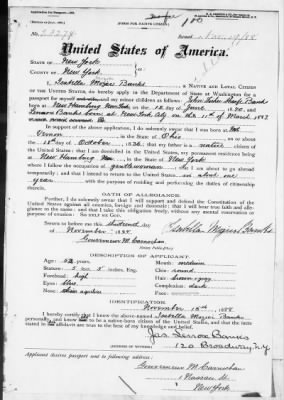 [FORM FOR NATIVE CITIZEN.]
No. 23274
Issued Nov. 17/88
United States of America.
STATE OF New York
COUNTY OF New York
I, Isabella Mozier Banks, A NATIVE AND LOYAL CITIZEN
OF THE UNITED STATES, do hereby apply to the Department of State at Washington for a
passport for myself and my minor children as follows: John
born at New Hamburg New York on the 12 day of June
Lenox Banks born at New York City on the 11th of March 1882
In support of the above application, I do solemnly swear that I was born at Mt
Vernon in the State of Ohio on or about
the 18th day of October 1836; that my father is a native citizen
of the United States; that I am domiciled in the United States, my permanent residence being
at New Hamburg in the State of New York
where I follow the occupation of gentlewoman; that I am about to go abroad
temporarily; and that I intend to return to the United States in about one
year with the purpose of residing and performing the duties of citizenship therein.
OATH OF ALLEGIANCE.
Further, I do solemnly swear that I will support and defend the Constitution of the
United States against all enemies, foreign and domestic; that I will bear true faith and alle-
giance to the same; and that I take this obligation freely, without any mental reservation or
purpose of evasion: SO HELP ME GOD.
Sworn to before me this thirteenth day
of November 1888
Gouverneur M. Carnochan
Notary Public.
DESCRIPTION OF APPLICANT.
Age: 52 years.
Stature: 5 feet 5 inches, Eng.
Forehead: high
Eyes: blue
Nose: aquiline
Mouth: medium
Chin: round
Hair: brown
Complexion: dark
Face:
IDENTIFICATION.
November 13th 1888
I hereby certify that I know the above-named Isabella Mozier Banks
personally, and know her to be a native-born citizen of the United States, and that the facts
stated in her affidavit are true to the best of my knowledge and belief.
Jas. Lenox Banks
120 Broadway N.Y.
[ADDRESS OF WITNESS.]
Applicant desires passport sent to following address:
Gouverneur M. Carnochan
Nassau St.
New York